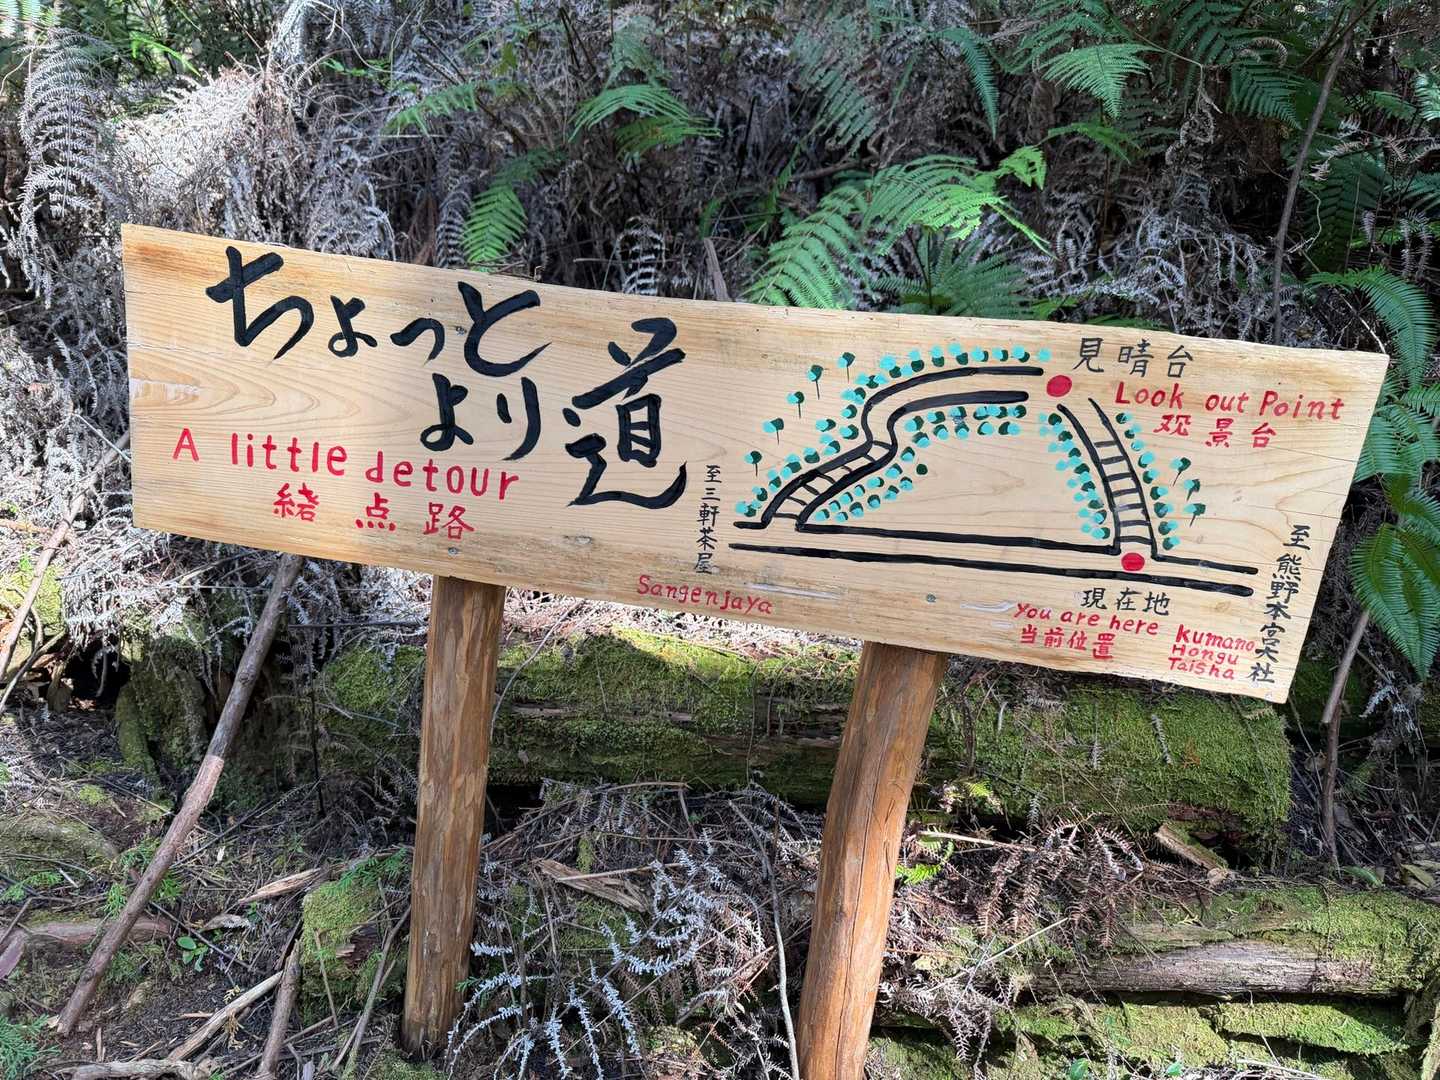 ちょっと
より道
A little detour
绕点路
見晴台
Look out Point
观景台
至三軒茶屋
Sangenjaya
現在地
You are here
当前位置
至熊野本宮大社
Kumano
Hongu
Taisha